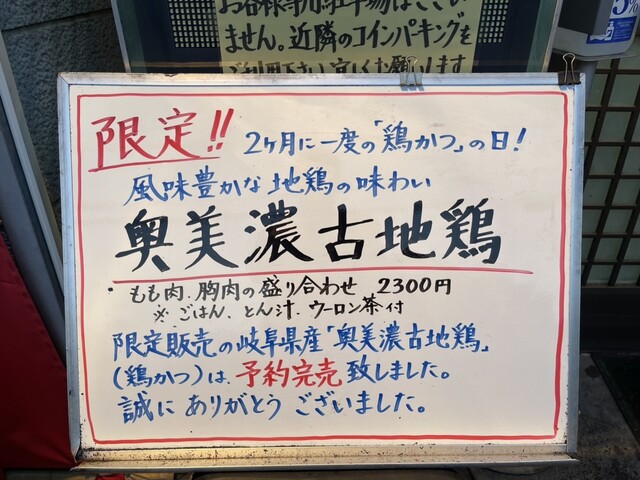 お客様専用駐車場はござい
ません。近隣のコインパーキングを
ご利用下さい宜しくお願いします
5%
限定!! 2ヶ月に一度の「鶏かつ」の日!
風味豊かな地鶏の味わい
奥美濃古地鶏
・もも肉、胸肉の盛り合わせ 2300円
※ごはん、とん汁、ウーロン茶付
限定販売の岐阜県産「奥美濃古地鶏」
(鶏かつ)は、予約完売致しました。
誠にありがとうございました。